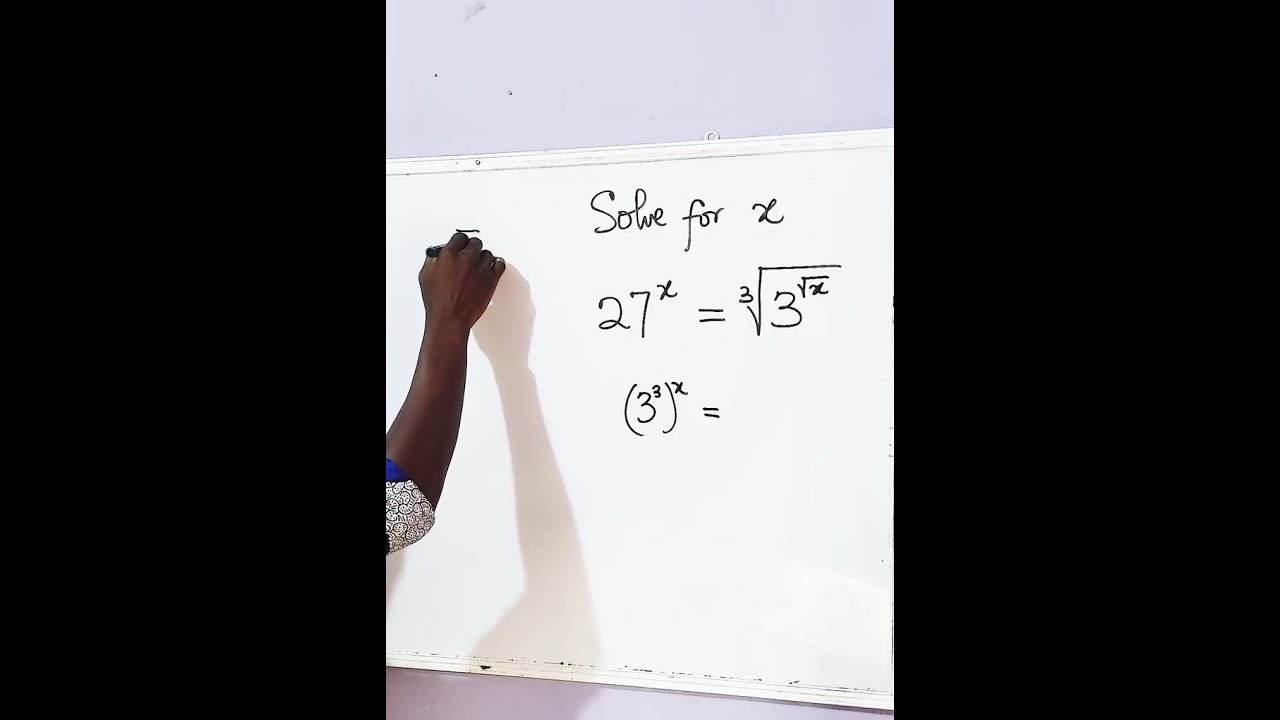 Solve for x
27^x = ∛(3^√x)
(3^3)^x =